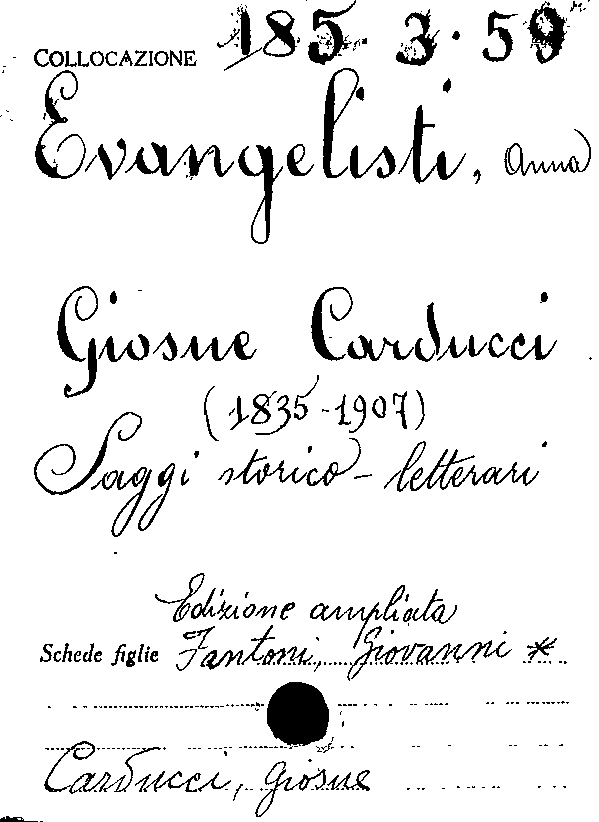 COLLOCAZIONE 185. 3. 59
Evangelisti, Anna
Giosue Carducci
(1835-1907)
Saggi storico-letterari
Edizione ampliata
Schede figlie Fantoni, Giovanni *
Carducci, Giosue